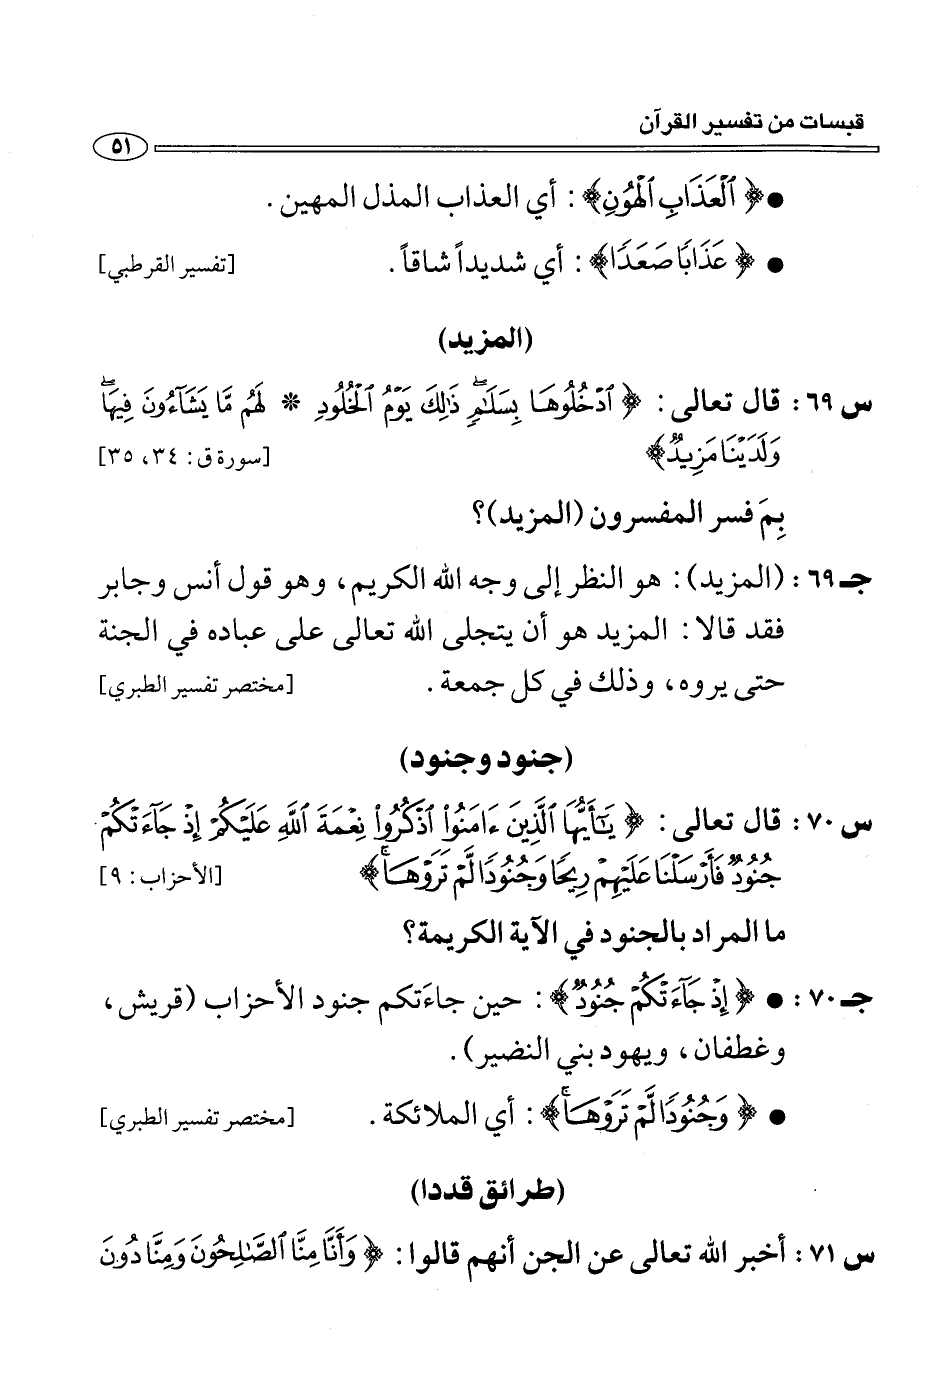 قبسات من تفسير القرآن
٥١
● ﴿ ٱلْعَذَابِ ٱلْهُونِ ﴾ : أي العذاب المذل المهين .
● ﴿ عَذَابًا صَعَدًا ﴾ : أي شديداً شاقاً . [تفسير القرطبي]
(المزيد)
س ٦٩ : قال تعالى : ﴿ ٱدْخُلُوهَا بِسَلَـٰمٍۖ ذَٰلِكَ يَوْمُ ٱلْخُلُودِ * لَهُم مَّا يَشَآءُونَ فِيهَاۖ
وَلَدَيْنَا مَزِيدٌ ﴾ [سورة ق : ٣٤، ٣٥]
بِمَ فسر المفسرون (المزيد)؟
جـ ٦٩ : (المزيد) : هو النظر إلى وجه الله الكريم، وهو قول أنس وجابر
فقد قالا : المزيد هو أن يتجلى الله تعالى على عباده في الجنة
حتى يروه، وذلك في كل جمعة . [مختصر تفسير الطبري]
(جنود وجنود)
س ٧٠ : قال تعالى : ﴿ يَـٰٓأَيُّهَا ٱلَّذِينَ ءَامَنُوا۟ ٱذْكُرُوا۟ نِعْمَةَ ٱللَّهِ عَلَيْكُمْ إِذْ جَآءَتْكُمْ
جُنُودٌ فَأَرْسَلْنَا عَلَيْهِمْ رِيحًا وَجُنُودًا لَّمْ تَرَوْهَاۚ ﴾ [الأحزاب : ٩]
ما المراد بالجنود في الآية الكريمة؟
جـ ٧٠ : ● ﴿ إِذْ جَآءَتْكُمْ جُنُودٌ ﴾ : حين جاءَتكم جنود الأحزاب (قريش ،
وغطفان ، ويهود بني النضير) .
● ﴿ وَجُنُودًا لَّمْ تَرَوْهَاۚ ﴾ : أي الملائكة . [مختصر تفسير الطبري]
(طرائق قددا)
س ٧١ : أخبر الله تعالى عن الجن أنهم قالوا : ﴿ وَأَنَّا مِنَّا ٱلصَّـٰلِحُونَ وَمِنَّا دُونَ